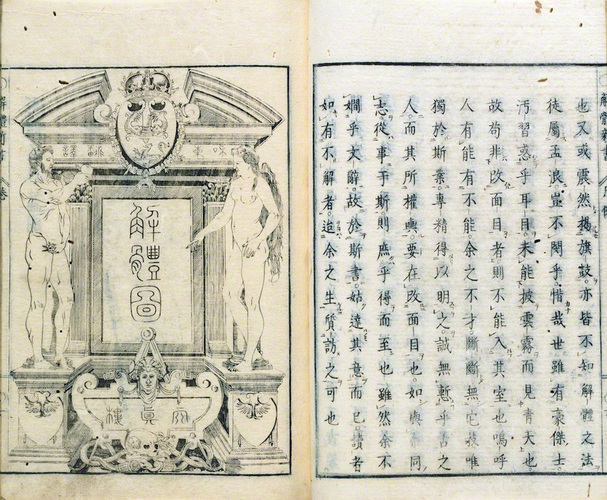 也又或震然揚旗鼓。亦皆不知解體之法
徒屬孟浪。豈不閔乎。惜哉世雖有豪傑士
汚習惑乎耳目。未能披雲霧而見青天也
故苟非改面目者。則不能入其室也。嗚呼
人有能有不能。余之不才。斷斷無它技。唯
獨於斯業。專精得以明之。誠無慙乎吾之
人。而其所權輿。要在改面目也。如與余同
志。從事于斯則庶乎得而至也。雖然余不
嫺乎文辭。故於斯書。姑達其意而已。讀者
如有不解者。迨余之生質訪之可也
解體圖
天真樓